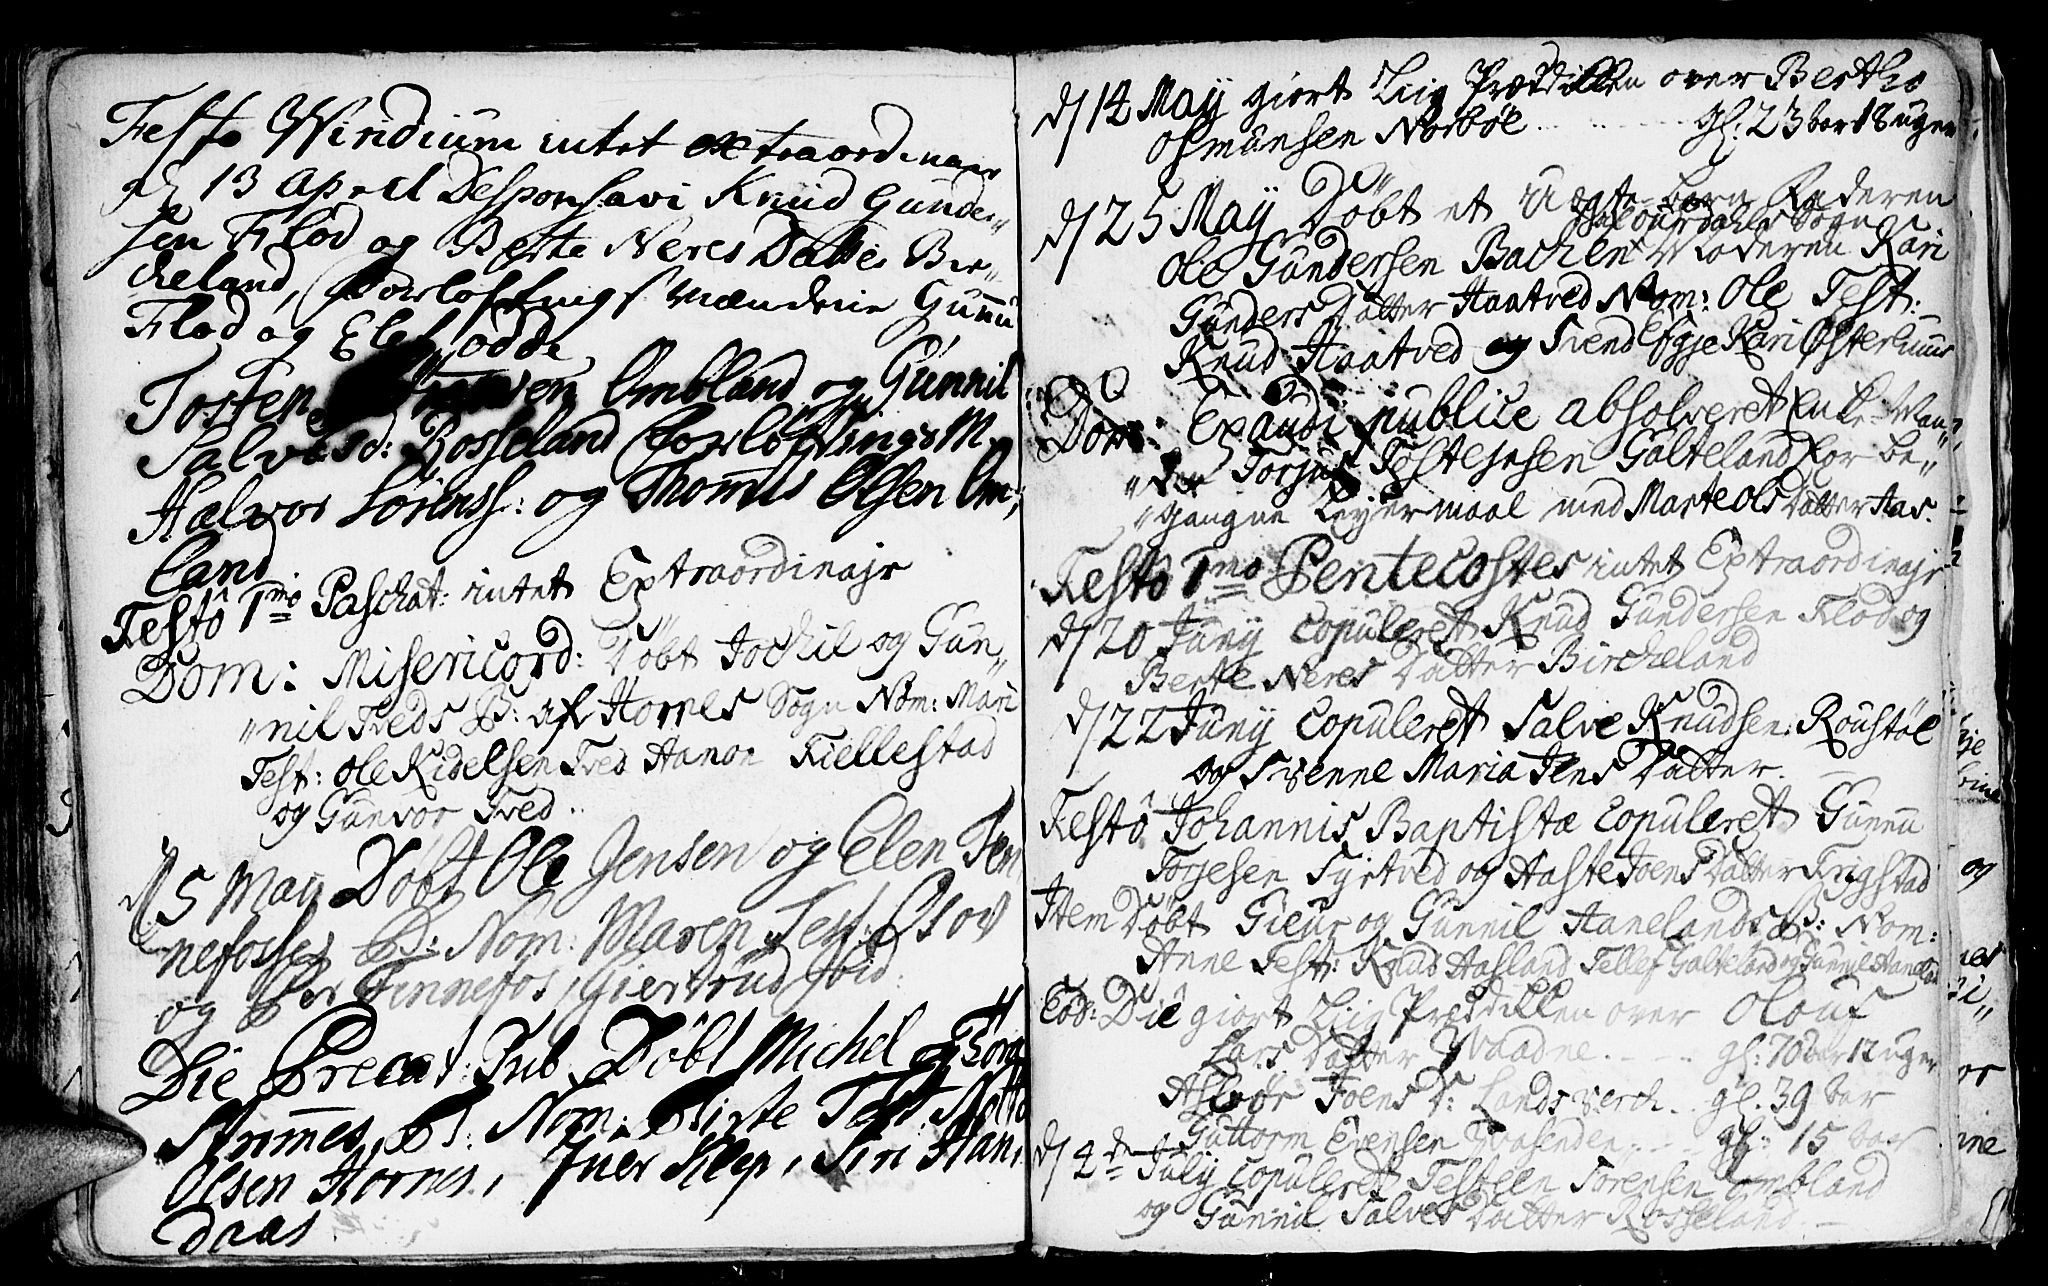 Festo Viridium intet extraordinair
d 13 April Desponsavi Knud Gunder„
sen Flod og Berte Neres Datter Bir„
cheland, Forlofnings Mændene Gunnu
Flod og Elef odde
Tosten Ombland og Gunnil
Salves D: Rosseland Forlofnings M.
Halvor Sörenss: og Thomas Olsen Om„
land
Festo 1mo Paschat: intet Extraordinajr
Dom: Misericord: Döbt Jochil og Gun„
„nil Tveds B: afl Hornes Sogn Nom: Mari
Test: Ole Kidelsen Tved Hanon Fiellestad
og Gunvor Tved.
d 5 May Döbt Ole Jensen og Elen Fen
nefosses B: Nom: Maren Test: Osov
og Per Fennefos, Giertrud ibid:
Die Precat: Pub. Döbt Michel og Torg
Strömes B: Nom: Birte Test:
Olsen Hornes, Iver Klep, Siri Han
daas
d 14 May giort Liig Prædikken over Berthe
Osmunsen Norböe gl: 23 var 18 uger
d 25 May Döbt et Uægte barn Faderen
Sogn
Ole Gundersen Bachen Moderen Kari
Gunders Datter Haatved Nom: Ole Test:
Knud Haatved og Svend Efgje Kari Østerhuus
Dom: Exaudi publice absolveret Enke Man„
„den Torjus Tostensen Galteland for be„
„gangne Leyermaal med Marte Ols Datter Aas.
Festo 1mo Pentecostes intet Extraordinajr
d 20 Juny Copuleret Knud Gundersen Flod og
Berte Neres Datter Bircheland
d 22 Juny Copuleret Salve Knudsen Roustöl
og Svenne Maria Jens Datter.
Festo Johannis Baptistæ Copuleret Gunnu
Torjesen Tyrtved og Aaste Joens Datter Frigstad
Item Döbt Gieur og Gunnil Hanelands B: Nom:
Anne Test: Knud Aasland Tellef Galteland og Gunnil Haneland
Eod: Die giort Liig Prædikken over Olouf
Lars Datter Vaadne. gl: 70 var 12 uger
Aslövr Joens D: Landsverch. gl. 39 var
Guttorm Evensen Vasenden gl: 15 var
d 4de July Copuleret Testeen Sorensen Ombland
og Gunnil Salves Datter Rosseland.